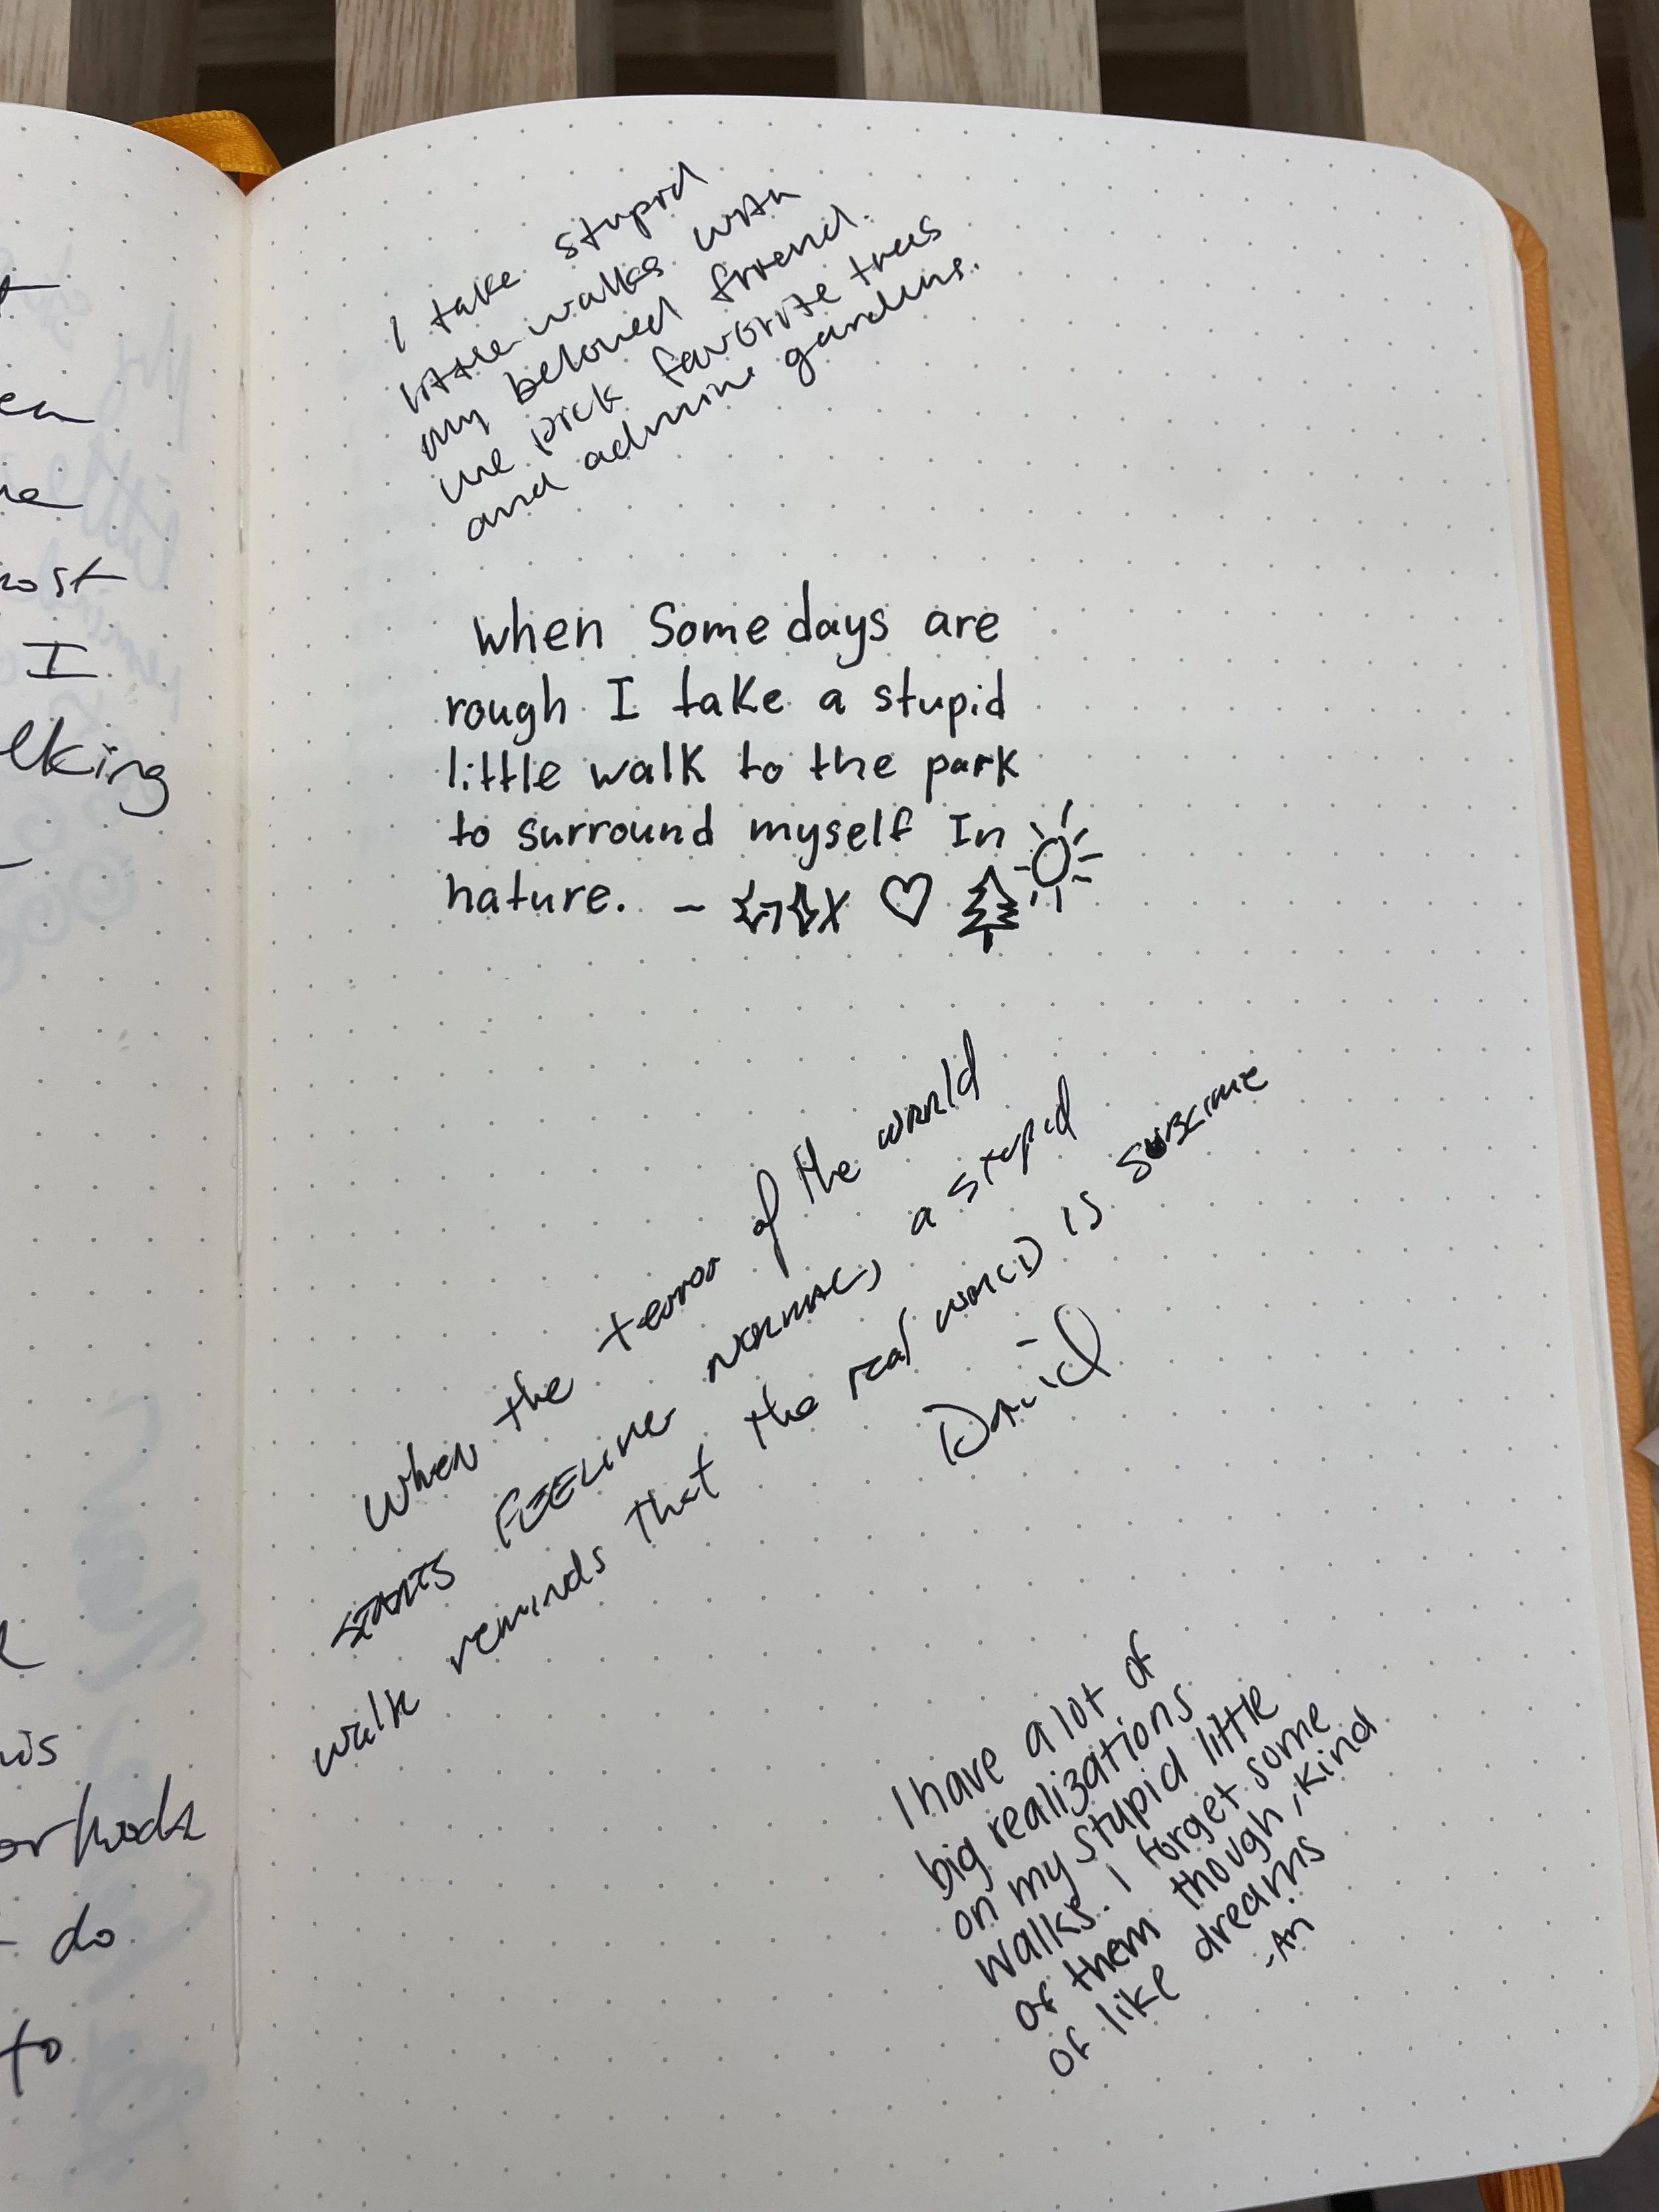 t
en
ne
ost
I
lking
I take stupid
little walks with
my beloved friend.
we pick favorite trees
and admire gardens.
when Some days are
rough I take a stupid
little walk to the park
to surround myself In
nature. -
When the terror of the world
STARTS FEELING NORMAL, a stupid
walk reminds that the real WORLD IS SUBLIME
-
David
is
do
to
I have a lot of
big realizations
on my stupid little
walks. I forget some
of them though, kind
of like dreams
-An